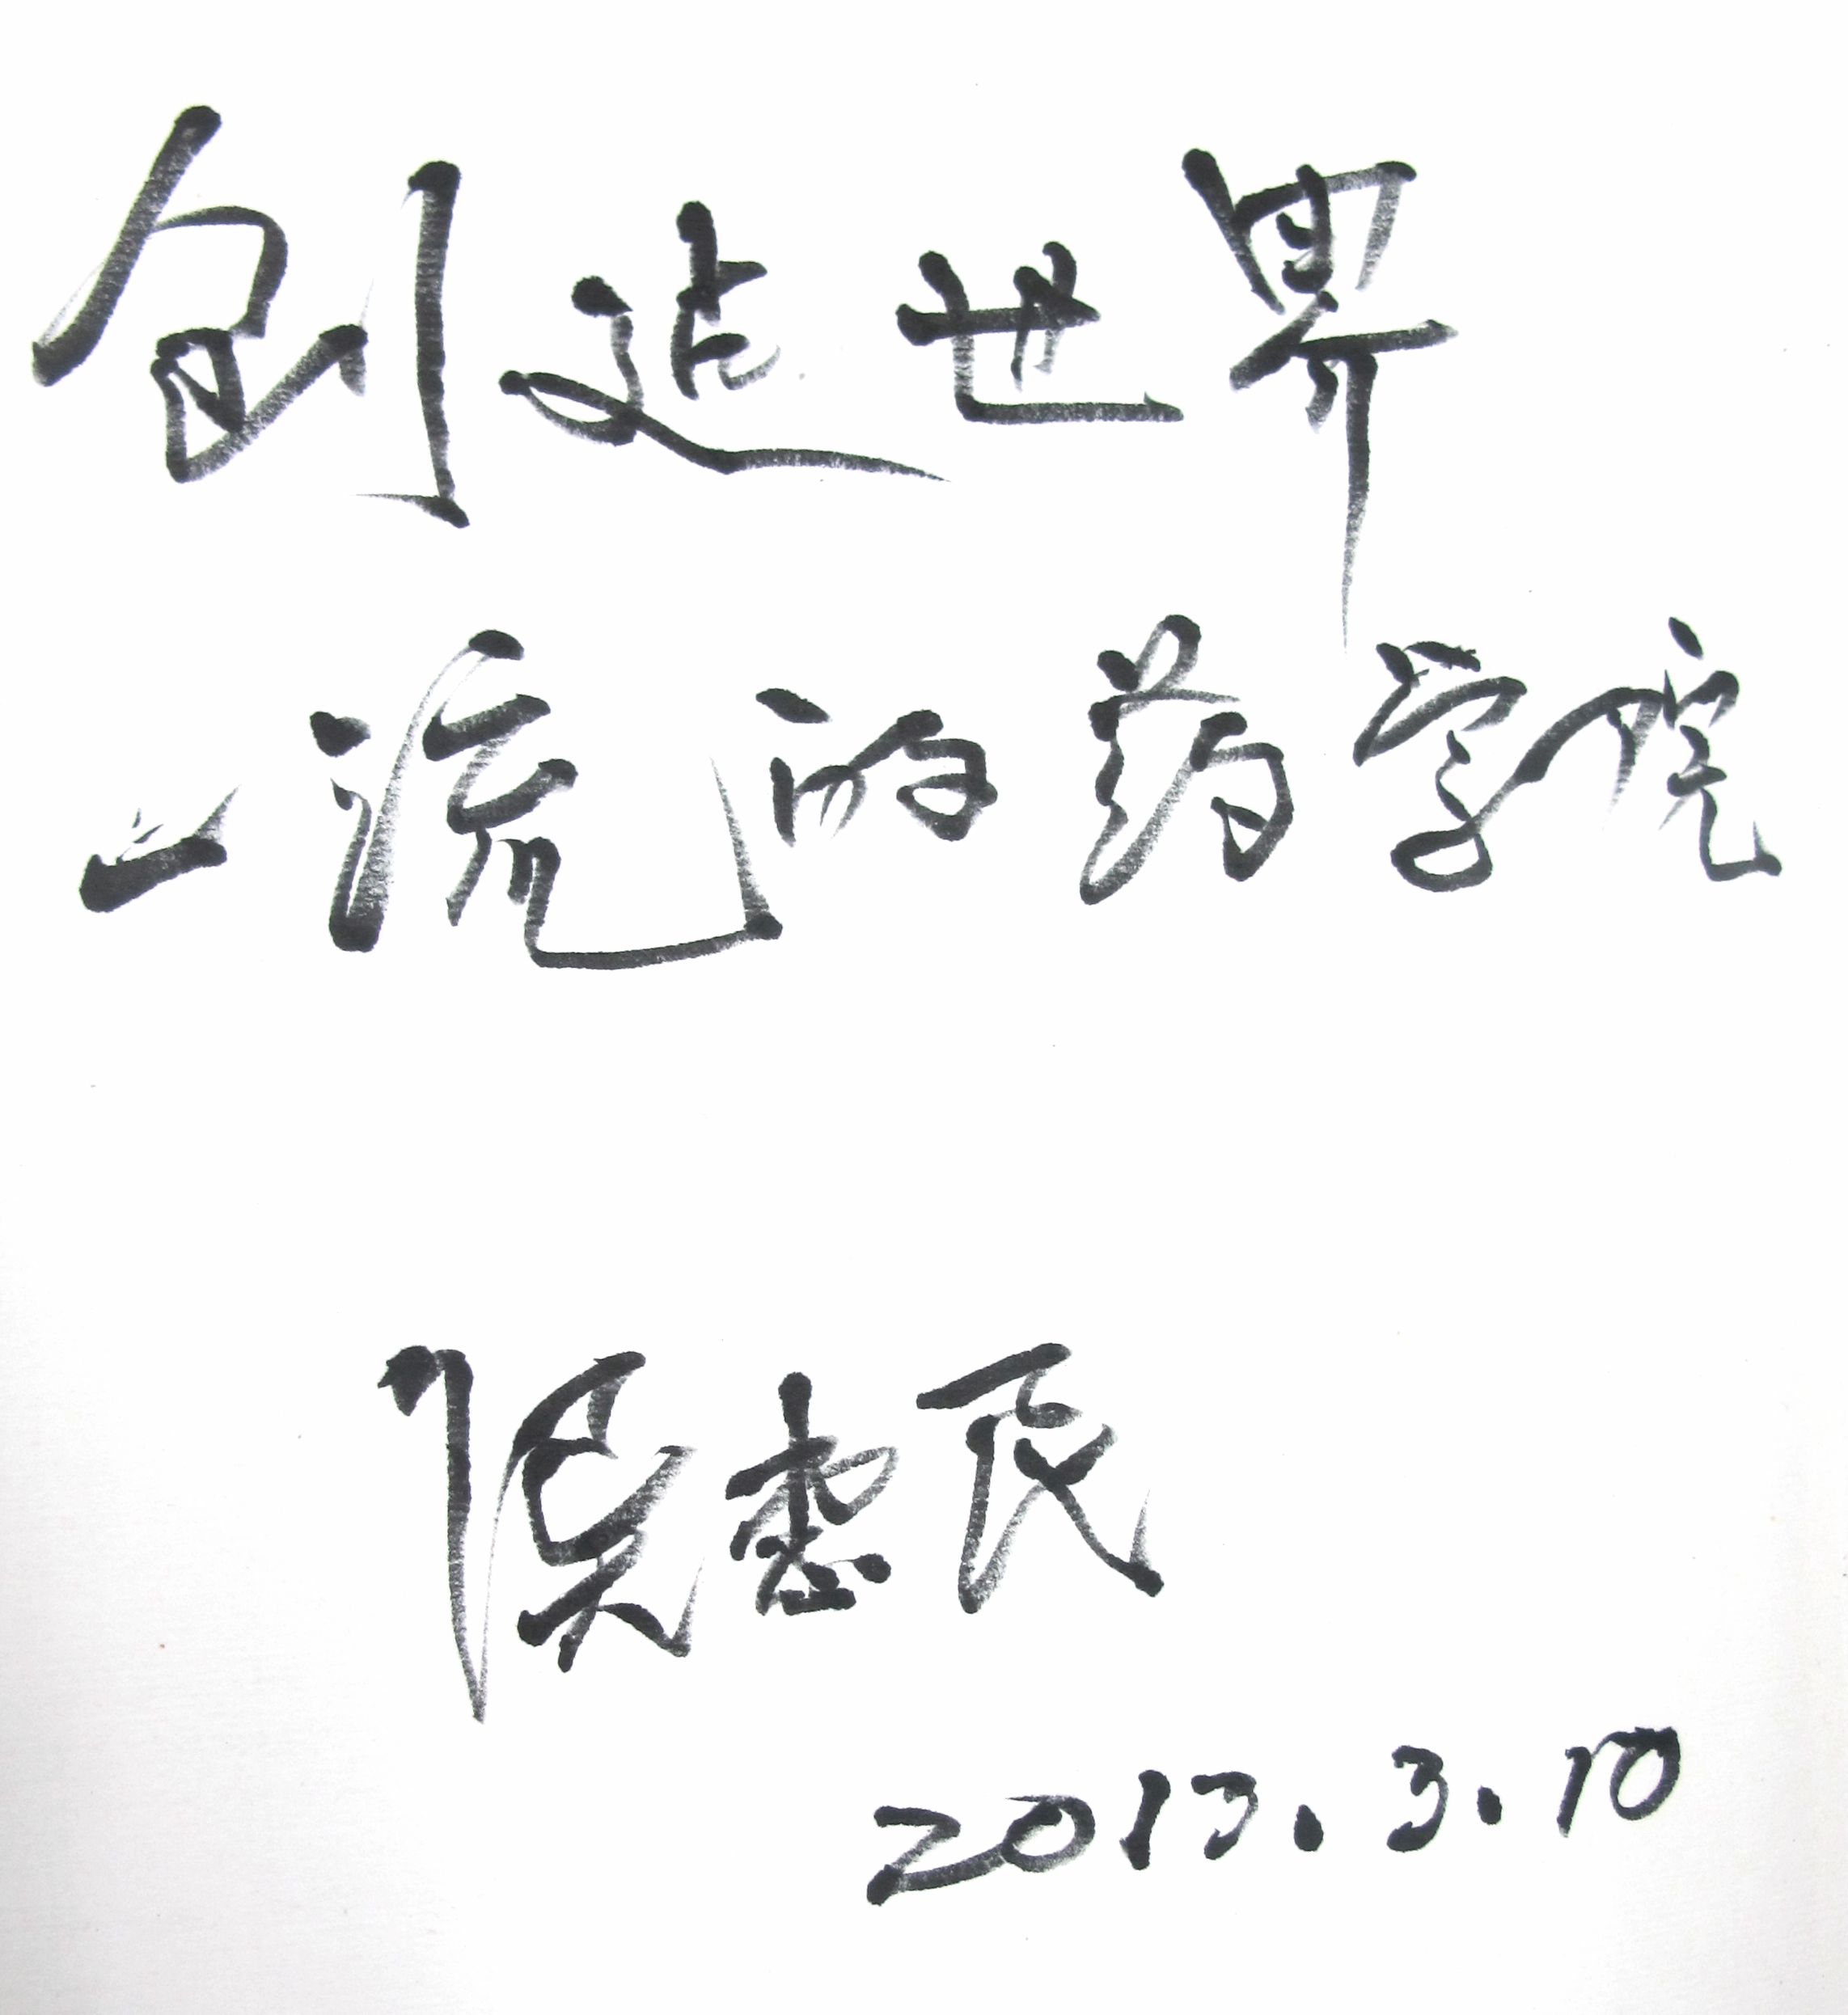 创造世界
一流的药学院
侯惠民
2013.3.10